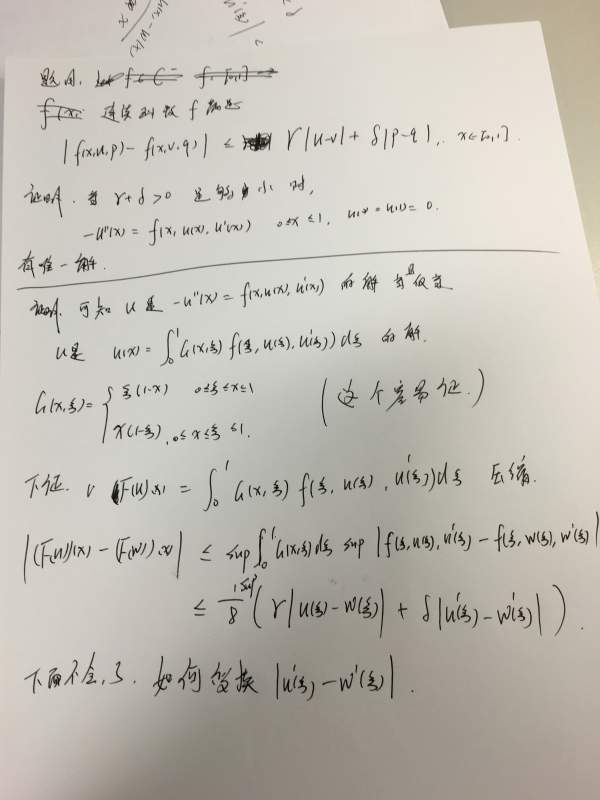 题目.
连续函数 f 满足
|f(x,u,p) - f(x,v,q)| ≤ γ|u-v| + δ|p-q|, x∈[0,1].
证明. 当 γ+δ>0 足够小时,
-u''(x) = f(x, u(x), u'(x)) 0≤x≤1, u(0)=u(1)=0.
有唯一解.
证明. 可知 u 是 -u''(x) = f(x,u(x),u'(x)) 的解当且仅当
u是 u(x) = ∫₀¹ G(x,ξ) f(ξ, u(ξ), u'(ξ)) dξ 的解.
G(x,ξ) = { ξ(1-x) 0≤ξ≤x≤1
x(1-ξ), 0≤x≤ξ≤1.
(这个容易证.)
下证. (F(u))(x) = ∫₀¹ G(x,ξ) f(ξ, u(ξ), u'(ξ)) dξ 压缩.
|(F(u))(x) - (F(w))(x)| ≤ sup ∫₀¹ G(x,ξ) dξ sup |f(ξ,u(ξ),u'(ξ)) - f(ξ,w(ξ),w'(ξ))|
≤ 1/8 sup (γ|u(ξ)-w(ξ)| + δ|u'(ξ)-w'(ξ)|).
下面不会了. 如何变换 |u'(ξ) - w'(ξ)|.